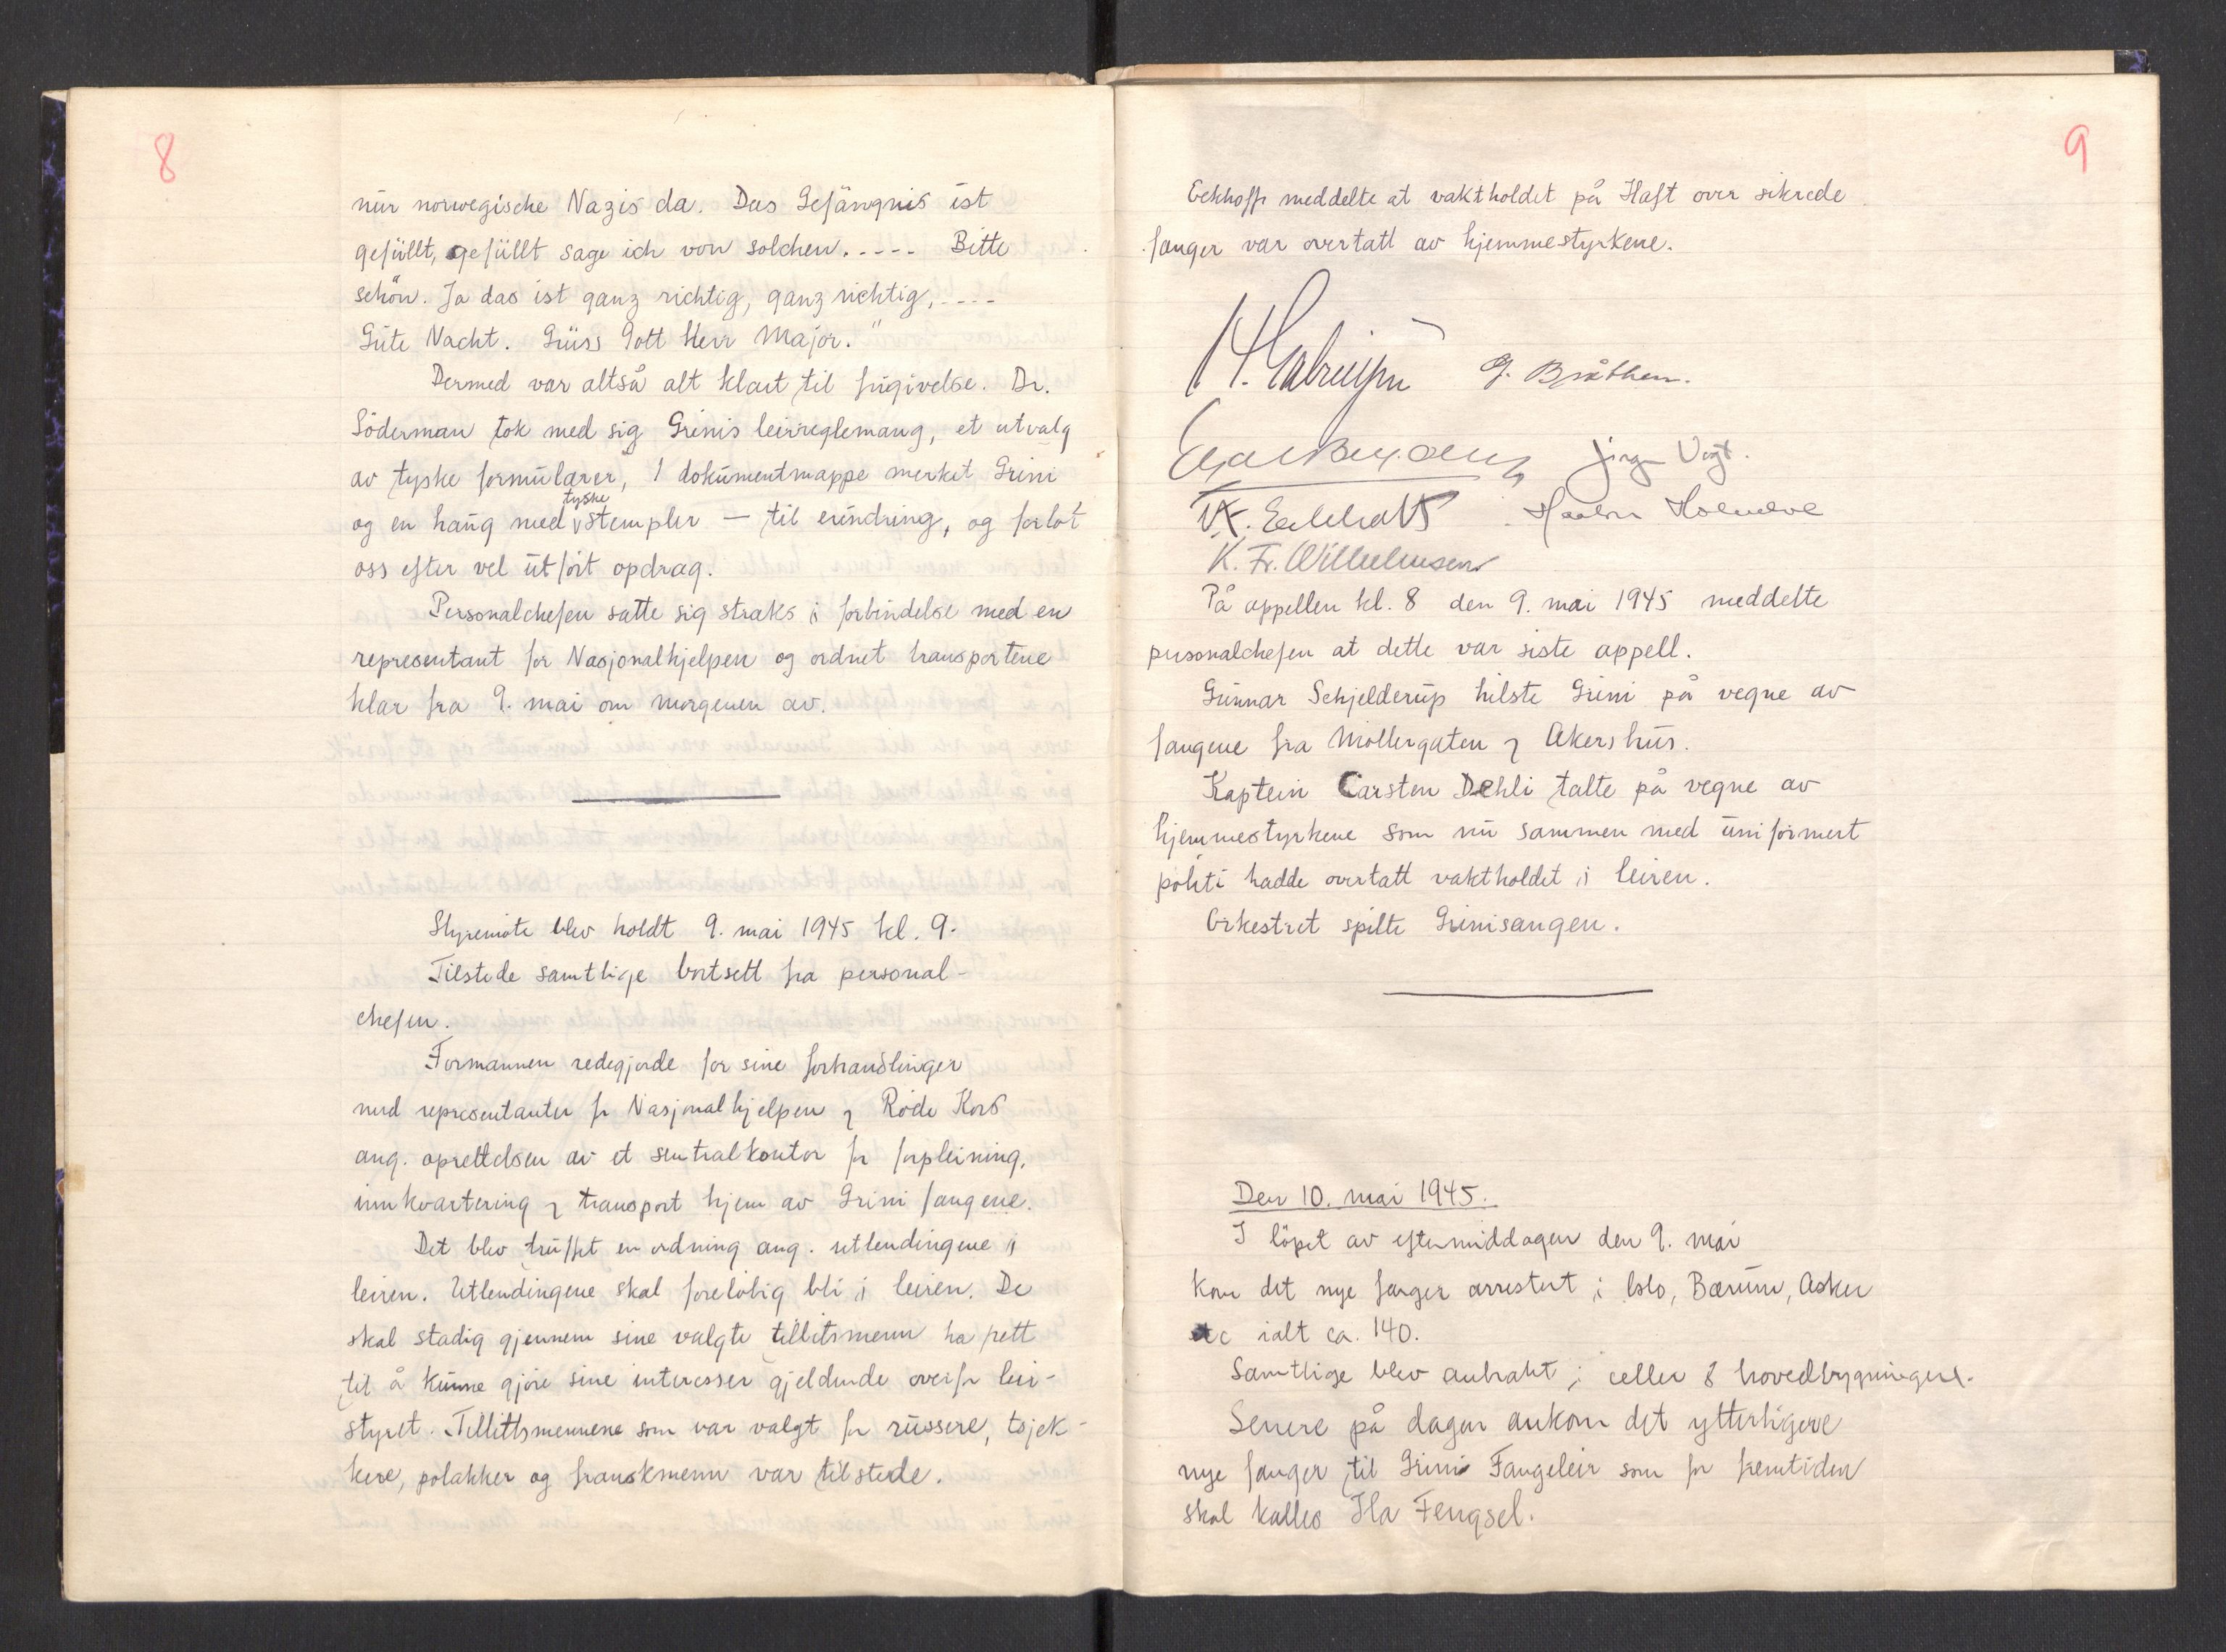 8
nur norwegische Nazis da. Das Gefängnis ist
gefüllt, gefüllt sage ich von solchen. ---- Bitte
schön. Ja das ist ganz richtig, ganz richtig, ----
Gute Nacht. Grüss Gott Herr Major."
Dermed var altså alt klart til frigivelse. Dr.
Söderman tok med sig Grinis leirreglemang, et utvalg
av tyske formularer, 1 dokumentmappe merket Grini
og en haug med tyske stempler — til erindring, og forlot
oss efter vel utført opdrag.
Personalchefen satte sig straks i forbindelse med en
representant for Nasjonalhjelpen og ordnet transportene
klar fra 9. mai om morgenen av.
Styremöte blev holdt 9. mai 1945 kl. 9.
Tilstede samtlige bortsett fra personal-
chefen.
Formannen redegjorde for sine forhandlinger
med representanter fr Nasjonalhjelpen og Röde Kors
ang. oprettelsen av et sentralkontor fr forpleining,
innkvartering og transport hjem av Grini fangene.
Det blev truffet en ordning ang. utlendingene i
leiren. Utlendingene skal foreløbig bli i leiren. De
skal stadig gjennem sine valgte tillitsmenn ha rett
til å kunne gjöre sine interesser gjeldende overfr leir-
styret. Tillittsmennene som var valgt fr russere, tsjek-
kere, polakker og franskmenn var tilstede.
9
Eckhoff meddelte at vaktholdet på Haft over sikrede
fanger var overtatt av hjemmestyrkene.
G. Bråthen.
Jörgen Vogt.
K. Fr. Wilhelmsen
På appellen kl. 8 den 9. mai 1945 meddelte
personalchefen at dette var siste appell.
Gunnar Schjelderup hilste Grini på vegne av
fangene fra Möllergaten og Akershus.
Kaptein Carsten Dehli talte på vegne av
hjemmestyrkene som nu sammen med uniformert
politi hadde overtatt vaktholdet i leiren.
Orkestret spilte Grinisangen.
Den 10. mai 1945.
I löpet av eftermiddagen den 9. mai
kom det nye fanger arrestert i Oslo, Bærum, Asker
etc ialt ca. 140.
Samtlige blev anbrakt i celler i hovedbygningen.
Senere på dagen ankom det ytterligere
nye fanger til Grini Fangeleir som for fremtiden
skal kalles Ila Fengsel.